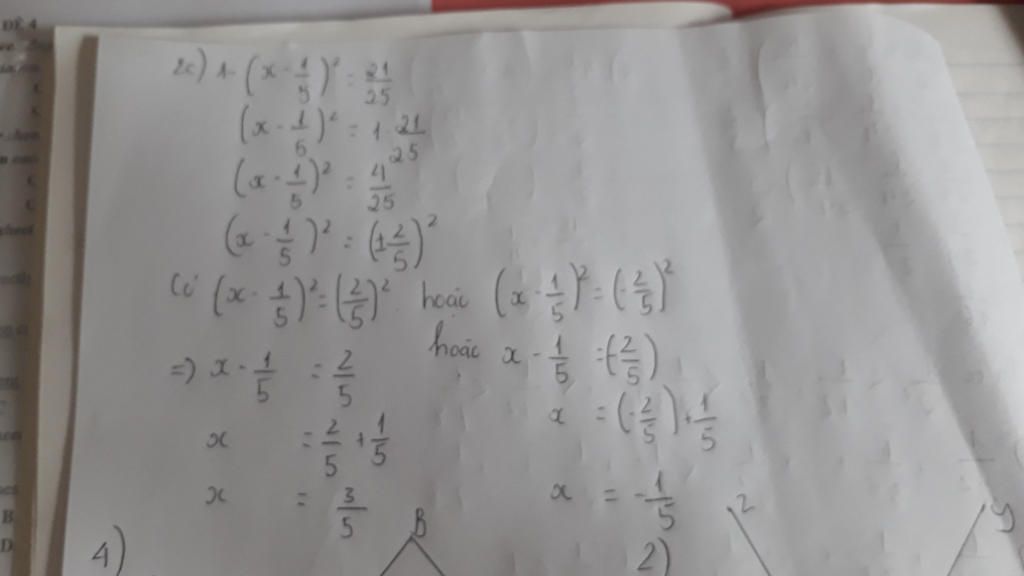 2c) 1 - (x - 1/5)² = 21/25
(x - 1/5)² = 1 - 21/25
(x - 1/5)² = 4/25
(x - 1/5)² = (±2/5)²
Có (x - 1/5)² = (2/5)² hoặc (x - 1/5)² = (-2/5)²
=> x - 1/5 = 2/5 hoặc x - 1/5 = (-2/5)
x = 2/5 + 1/5 x = (-2/5) + 1/5
x = 3/5 x = -1/5
B 2 y
4) 2)
ĐỀ 4
B
D